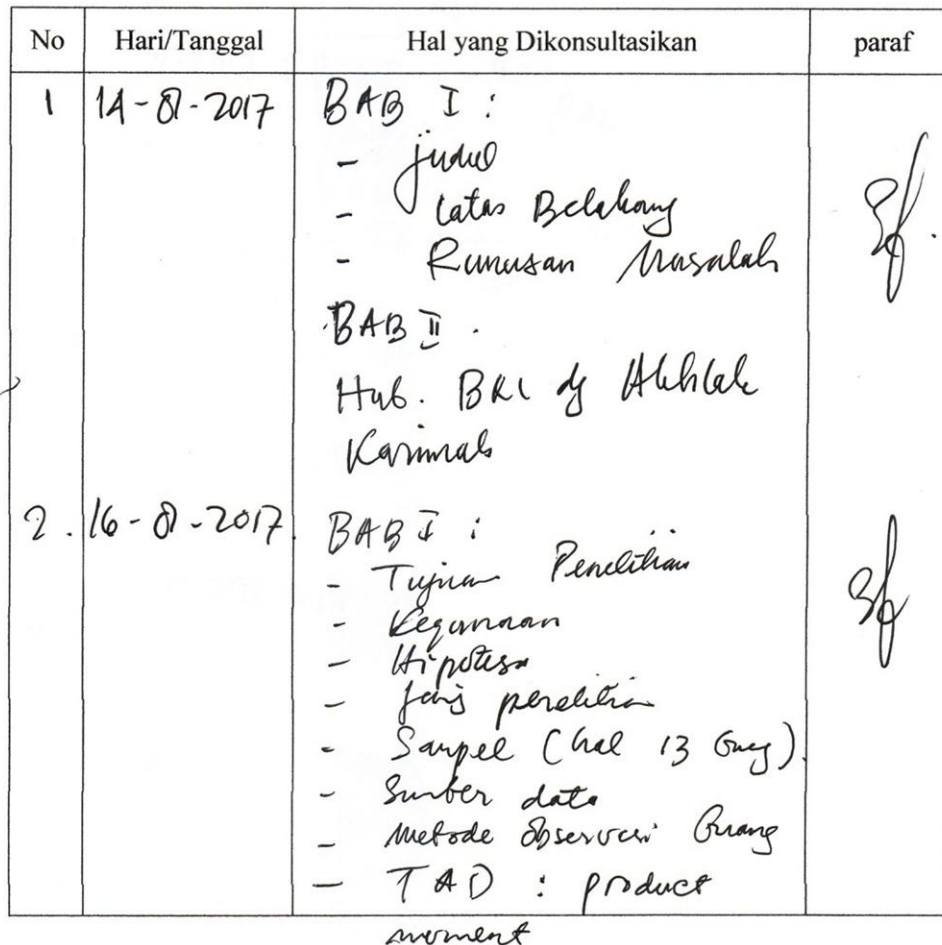 No Hari/Tanggal Hal yang Dikonsultasikan paraf
1 14-8-2017 BAB I :
- judul
- Latar Belakang
- Rumusan Masalah
BAB II .
Hub. BKI dg Akhlak
Karimah
2. 16-8-2017 BAB I :
- Tujuan Penelitian
- Kegunaan
- Hipotesa
- jenis penelitian
- Sampel (hal 13 )
- Sumber data
- Metode observasi
- TAD : product
moment